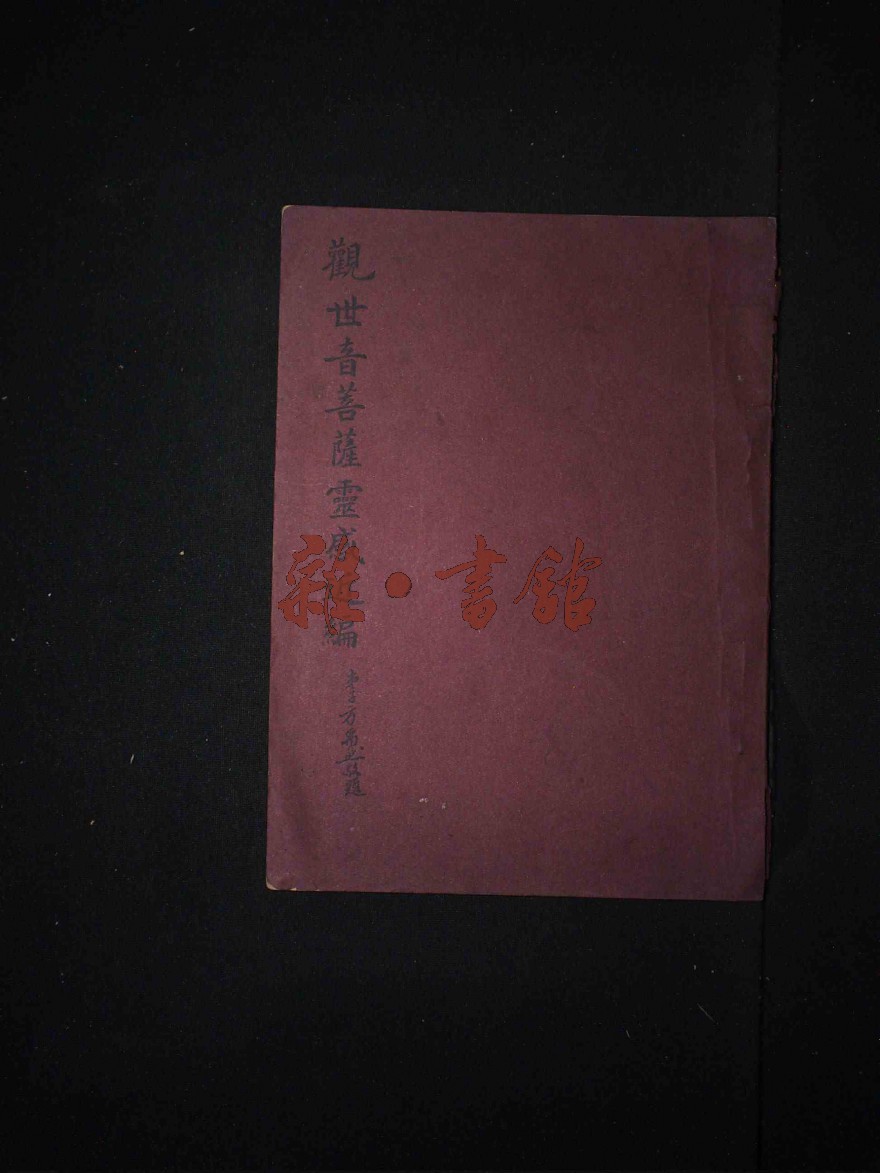 觀世音菩薩靈感編
李方敬題
雜·書館